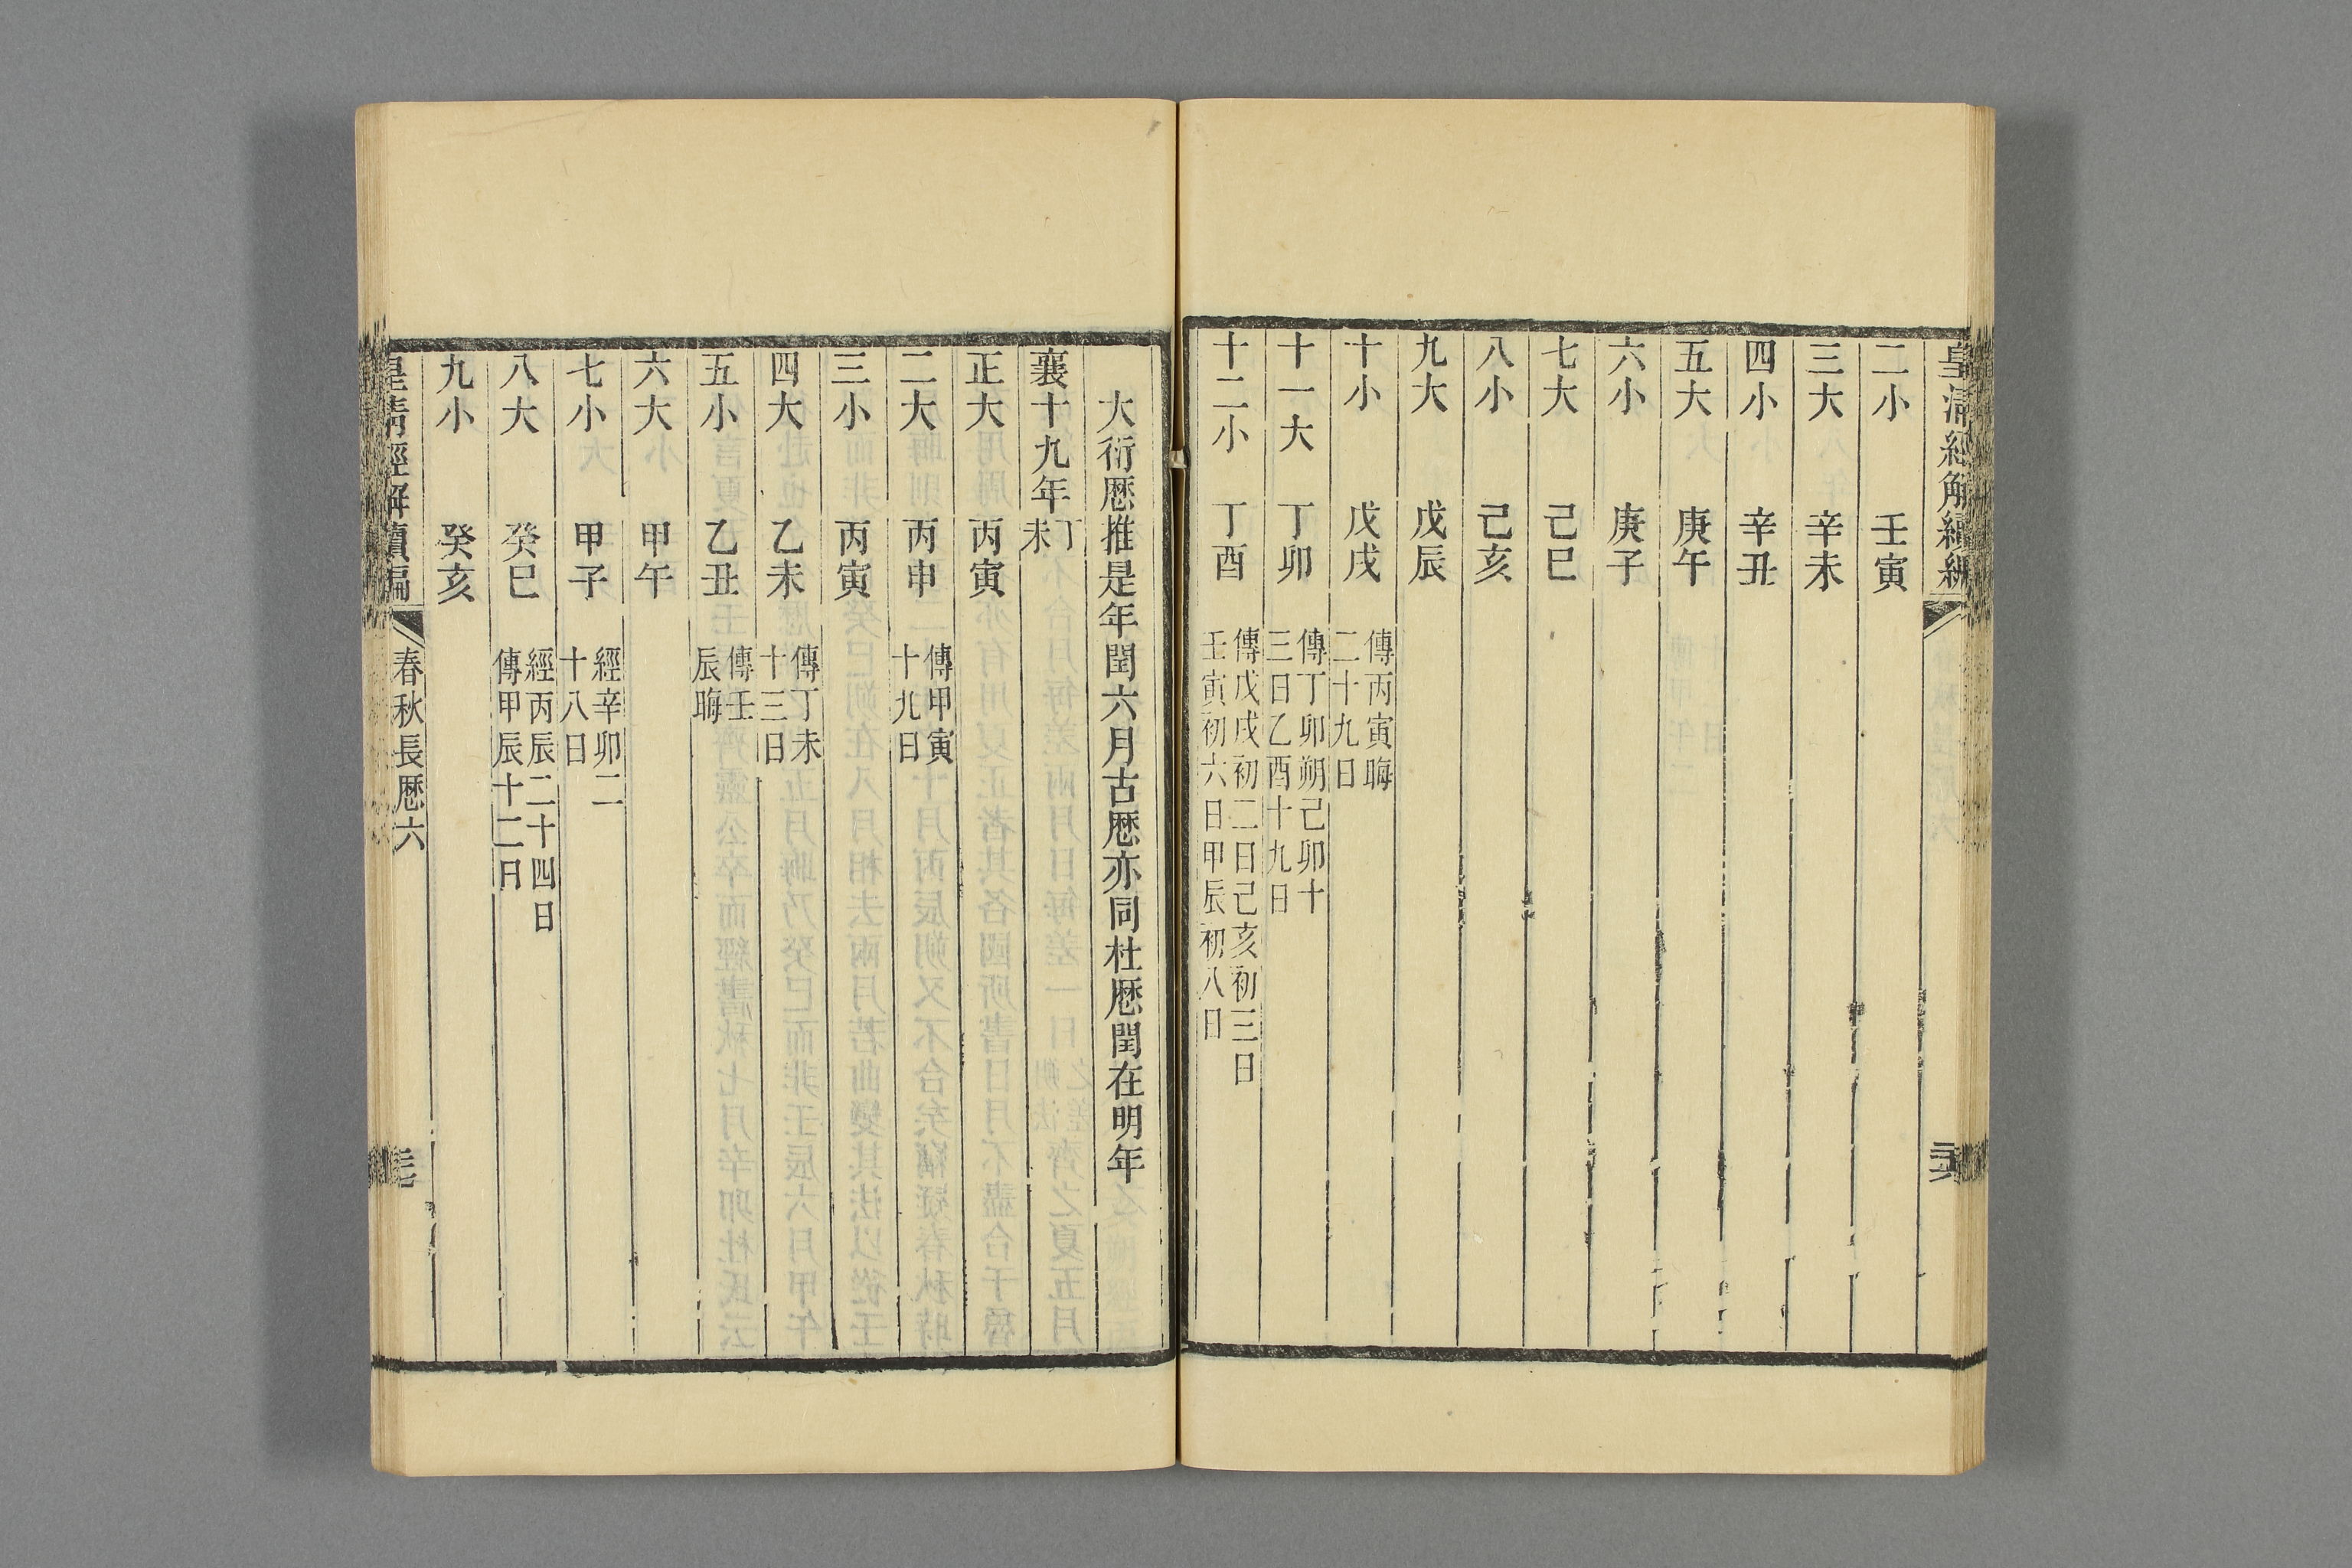 皇清經解續編
二小　壬寅
三大　辛未
四小　辛丑
五大　庚午
六小　庚子
七大　己巳
八小　己亥
九大　戊辰
十小　戊戌　傳丙寅晦
二十九日
十一大　丁卯　傳丁卯朔己卯十
三日乙酉十九日
十二小　丁酉　傳戊戌初二日己亥初三日
壬寅初六日甲辰初八日
大衍厯推是年閏六月古厯亦同杜厯閏在明年
襄十九年丁
未
正大　丙寅
二大　丙申　傳甲寅
十九日
三小　丙寅
四大　乙未　傳丁未
十三日
五小　乙丑　傳壬
辰晦
六大　甲午
七小　甲子　經辛卯二
十八日
八大　癸巳　經丙辰二十四日
傳甲辰十二日
九小　癸亥
皇清經解續編　春秋長厯六